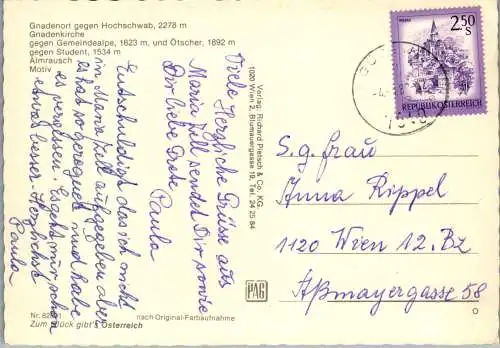 Gnadenort gegen Hochschwab, 2278 m
Gnadenkirche
gegen Gemeindealpe, 1623 m, und Ötscher, 1892 m
gegen Student, 1534 m
Almrausch
Motiv
Viele Herzliche Grüsse aus
Maria Zell sendet Dir sowie
Dir liebe Grete
Paula
Entschuldigt das ich nicht
in Maria Zell aufgegeben aber
es hat so geregnet und habe
es vergessen. Es geht mir schon
etwas besser. Herzlichst
Paula
Nr. 82
Zum Glück gibt's Österreich
nach Original-Farbaufnahme
Verlag: Richard Pietsch & Co. KG.
1020 Wien 2, Blumauergasse 19, Tel. 24 25 84
PAG
2.50
S
REPUBLIK ÖSTERREICH
S. g. Frau
Anna Rippel
1120 Wien 12. Bz
Aßmayergasse 58